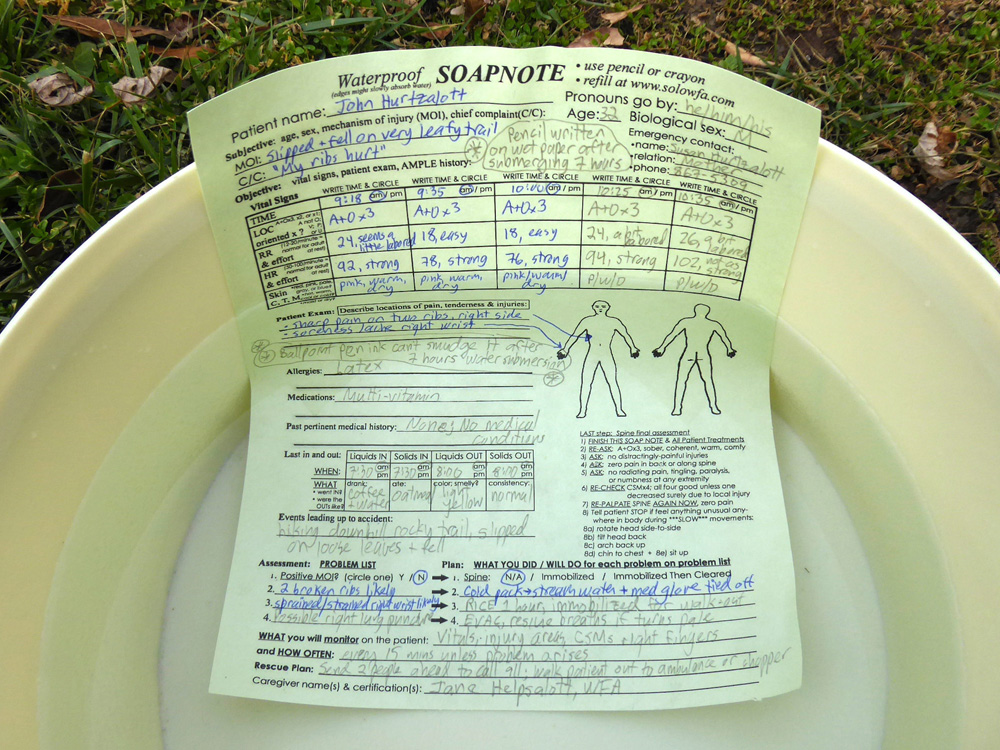 Waterproof SOAPNOTE • use pencil or crayon
(edges might slowly absorb water) • refill at www.solowfa.com
Patient name: John Hurtzalott Pronouns go by: he/him/his
Subjective: age, sex, mechanism of injury (MOI), chief complaint(C/C): Age: 32 Biological sex: M
MOI: Slipped + fell on very leafy trail
C/C: "My ribs hurt"
* Pencil written
on wet paper after
submerging 7 hours
Emergency contact:
•name: Susan Hurtzalott
•relation: Mother
•phone: 867-5309
Objective: vital signs, patient exam, AMPLE history:
Vital Signs WRITE TIME & CIRCLE WRITE TIME & CIRCLE WRITE TIME & CIRCLE WRITE TIME & CIRCLE WRITE TIME & CIRCLE
TIME 9:18 am / pm 9:35 am / pm 10:00 am / pm 10:25 am / pm 10:35 am / pm
LOC oriented x ? A+O x3 A+O x3 A+O x3 A+O x3 A+O x3
RR & effort 24, seems a little labored 18, easy 18, easy 24, a bit labored 26, a bit labored
HR & effort 92, strong 78, strong 76, strong 94, strong 102, not as strong
Skin C, T, M pink, warm, dry pink, warm, dry pink/warm/dry P/W/D P/W/D
Patient Exam: Describe locations of pain, tenderness & injuries:
- sharp pain on two ribs, right side
- soreness/ache right wrist
* Ballpoint pen ink can't smudge it after
7 hours water submersion *
Allergies: Latex
Medications: Multi-vitamin
Past pertinent medical history: None; No medical
conditions
Last in and out: Liquids IN Solids IN Liquids OUT Solids OUT
WHEN: 7:30 am pm 7:30 am pm 8:00 am pm 8:00 am pm
WHAT drank: ate: color: smelly? consistency:
• went IN? coffee oatmeal light normal
• were the OUTs like? + water yellow
Events leading up to accident:
hiking downhill rocky trail, slipped
on loose leaves + fell
LAST step: Spine final assessment
1) FINISH THIS SOAP NOTE & All Patient Treatments
2) RE-ASK: A+Ox3, sober, coherent, warm, comfy
3) ASK: no distractingly-painful injuries
4) ASK: zero pain in back or along spine
5) ASK: no radiating pain, tingling, paralysis,
or numbness at any extremity
6) RE-CHECK CSMx4; all four good unless one
decreased surely due to local injury
7) RE-PALPATE SPINE AGAIN NOW, zero pain
8) Tell patient STOP if feel anything unusual any-
where in body during ***SLOW*** movements:
8a) rotate head side-to-side
8b) tilt head back
8c) arch back up
8d) chin to chest + 8e) sit up
Assessment: PROBLEM LIST Plan: WHAT YOU DID / WILL DO for each problem on problem list
1. Positive MOI? (circle one) Y / N 1. Spine: N/A / Immobilized / Immobilized Then Cleared
2. 2 broken ribs likely 2. Cold pack→stream water + med glove tied off
3. sprained/strained right wrist likely 3. RICE 1 hour, immobilized for walk-out
4. Possible right lung puncture 4. EVAC, rescue breaths if turns pale
WHAT you will monitor on the patient: Vitals, injury areas, CSMs right fingers
and HOW OFTEN: every 15 mins unless problem arises
Rescue Plan: Send 2 people ahead to call 911, walk patient out to ambulance or chopper
Caregiver name(s) & certification(s): Jane Helpsalott, WFA